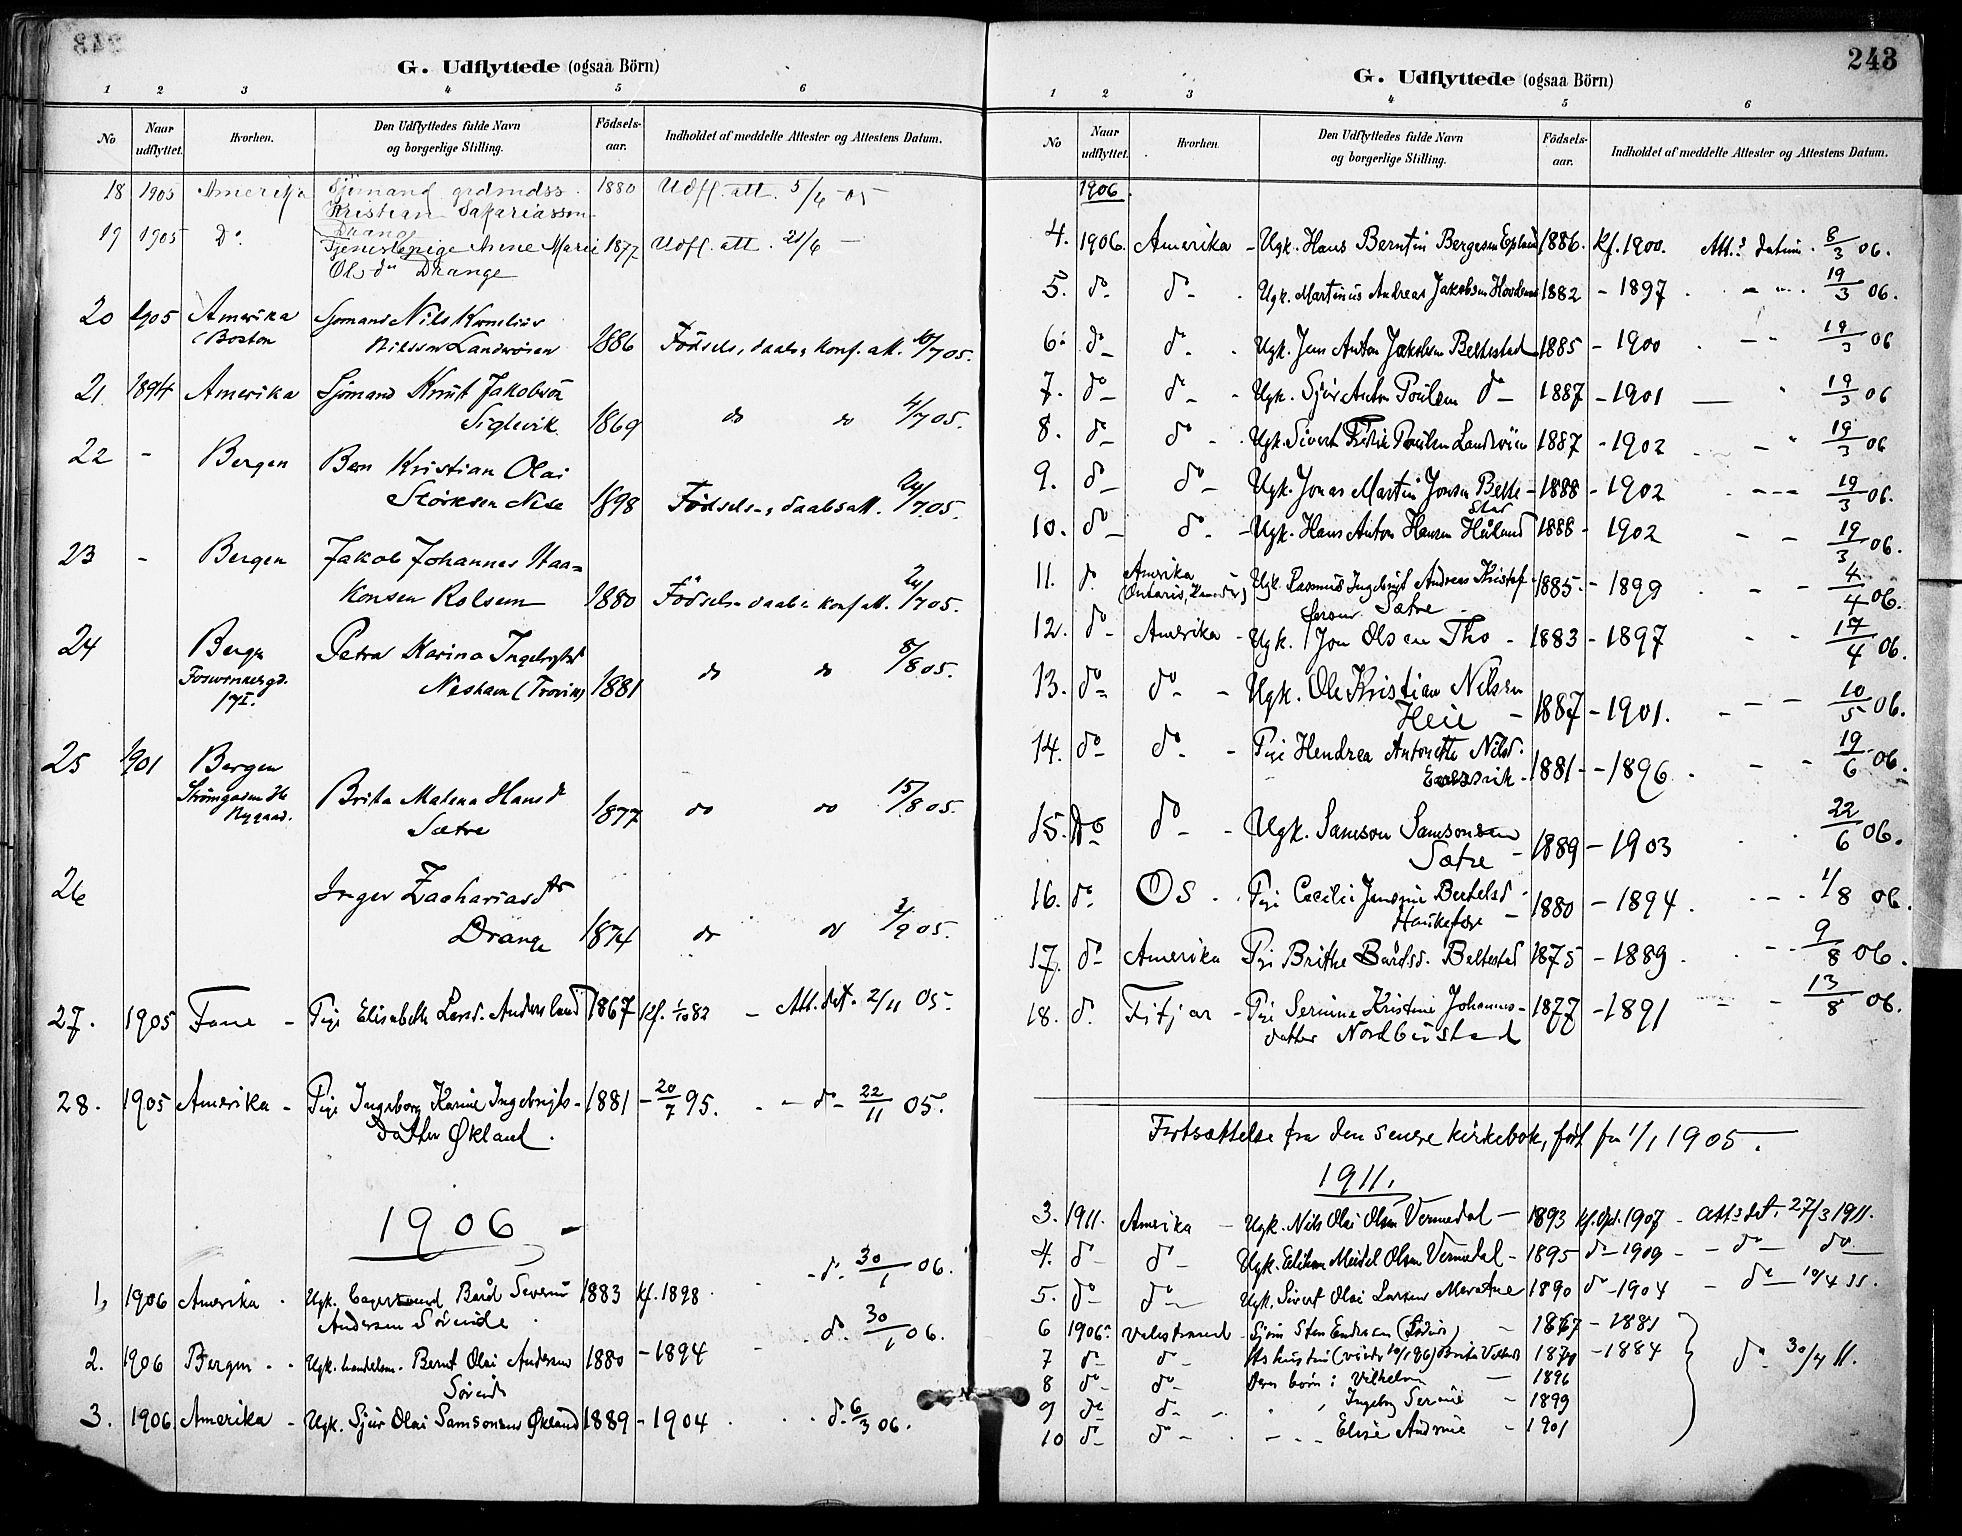 G. Udflyttede (ogsaa Börn)
1 2 3 4 5 6
No Naar udflyttet. Hvorhen. Den Udflyttedes fulde Navn og borgerlige Stilling. Födsels-aar. Indholdet af meddelte Attester og Attestens Datum.
18 1905 Amerika Sjömand 1880 Udfl. att. 5/6 05
Kristian Sakariassen
Drange
19 1905 Do Tjenestepige Anne Marie 1877 Udfl. att. 21/6 –
Olsd. Drange
20 1905 Amerika Sjømand Nils Kornelius
(Boston Nilssen Landrøien 1886 Fødsels, daabs, konf. att. 10/7 05.
21 1894 Amerika Sjømand Knut Jakobsen
Siglevik 1869 do do 4/7 05.
22 - Bergen Bern Kristian Olai
Størksen Nese 1898 Fødsels-, daabsatt. 24/7 05.
23 - Bergen Jakob Johannes Haa=
konsen Rolsem 1880 Fødsels- daabs konf att. 24/7 05.
24 Bergen Petra Karina Ingebrigtsd
Neshavn (Trovik) 1881 do do 8/8 05.
171.
25 1901 Bergen
Brita Malena Hansd 1877 do do 15/8 05.
Nygaard. Sætre
26 Inger Zachariasd
Drange 1874 do do 2/9 05.
27. 1905 Fane - Pige Elisabeth Larsd. Andersland 1867 Kf. 1/10 82 - Att. dat. 2/11 05-
28. 1905 Amerika - Pige Ingeborg Karine Ingebrigts- 1881 - 20/7 95. - do - 22/11 05.
datter Økland.
1906 -
1, 1906 Amerika Ugk. Bård Severin 1883 Kf. 1898 - do 30/1 06.
Andersen Sørvide
2. 1906 Bergen Ugk. handelsm. Bernt Olai Andersen 1880 - 1894 - do 30/1 06.
Sørvide
3. 1906. Amerika - Ugk. Sjur Olai Samsonsen Økland 1889 - 1904 do 6/3 06.
243
G. Udflyttede (ogsaa Börn)
1 2 3 4 5 6
No Naar udflyttet. Hvorhen. Den Udflyttedes fulde Navn og borgerlige Stilling. Födsels-aar. Indholdet af meddelte Attester og Attestens Datum.
1906.
4. 1906. Amerika - Ugk. Hans Berntin Bergesen Epland 1886. Kf. 1900. Att.s datum. 8/3 06.
5. do - do - Ugk. Martinus Andreas Jakobsen 1882 - 1897 19/3 06.
6. do - do - Ugk. Jens Anton Jakobsen Beltestad 1885 - 1900 19/3 06
7. do - do - Ugk. Sjur Anton Poulsen do - 1887 - 1901 19/3 06
8. do - do - Ugk. Sivert Fredrik Poulsen Landrøien 1887 - 1902 19/3 06
9. do - do - Ugk. Jonas Martin Jonsen Belte- 1888 - 1902 19/3 06.
stad
10. do - do - Ugk. Hans Anton Hansen Håland 1888 - 1902 19/3 06.
11. do Amerika Ugk. Rasmus Ingebrigt Andreas Kristof- 1885 - 1899 4/4 06.
(Ontario, Kanada) fersen Sætre
12. do - Amerika - Ugk. Jon Olsen Tho - 1883 - 1897 17/4 06.
13. do - do - Ugk. Ole Kristian Nilsen
Heie - 1887 - 1901. 10/5 06.
14. do - do - Pige Hendrea Antonette Nilsd.
1881 - 1896. 19/6 06.
15. Do do - Ugk. Samson Samsonsen
Sætre - 1889 - 1903 22/6 06.
16. do Os Pige Cecilie Jensine Bertelsd
1880 - 1894. 1/8 06.
17. do - Amerika Pige Brithe Bårdsd. Beltestad 1875 - 1889. 9/8 06.
18. do Fitjar - Pige Serine Kristine Johannes- 1877 - 1891 13/8 06.
datter Nordbustad
Fortsættelse fra den senere kirkebok, ført fra 1/1 1905.
1911.
3. 1911. Amerika - Ugk. Nils Olai Olsen Vernedal - 1893 Kf. 1907 - Att.s dt. 27/3 1911.
4. do do - Ugk. Olsen Vernedal - 1895 do - 1909 - - do - do
5. do - do - Ugk. Sivert Olai Larsen 1890 do - 1904 - do - 10/4 11.
6 1906. Valestrand - Sten Endresen - 1867 - 1881
7 do - do - hustru 1870 - 1884 do 30/4 11.
8 do - do - Deres børn: Vilhelm - 1896
9 do do - - Ingeborg Serine - 1899
10 do - do - - Elise Andrine - 1901